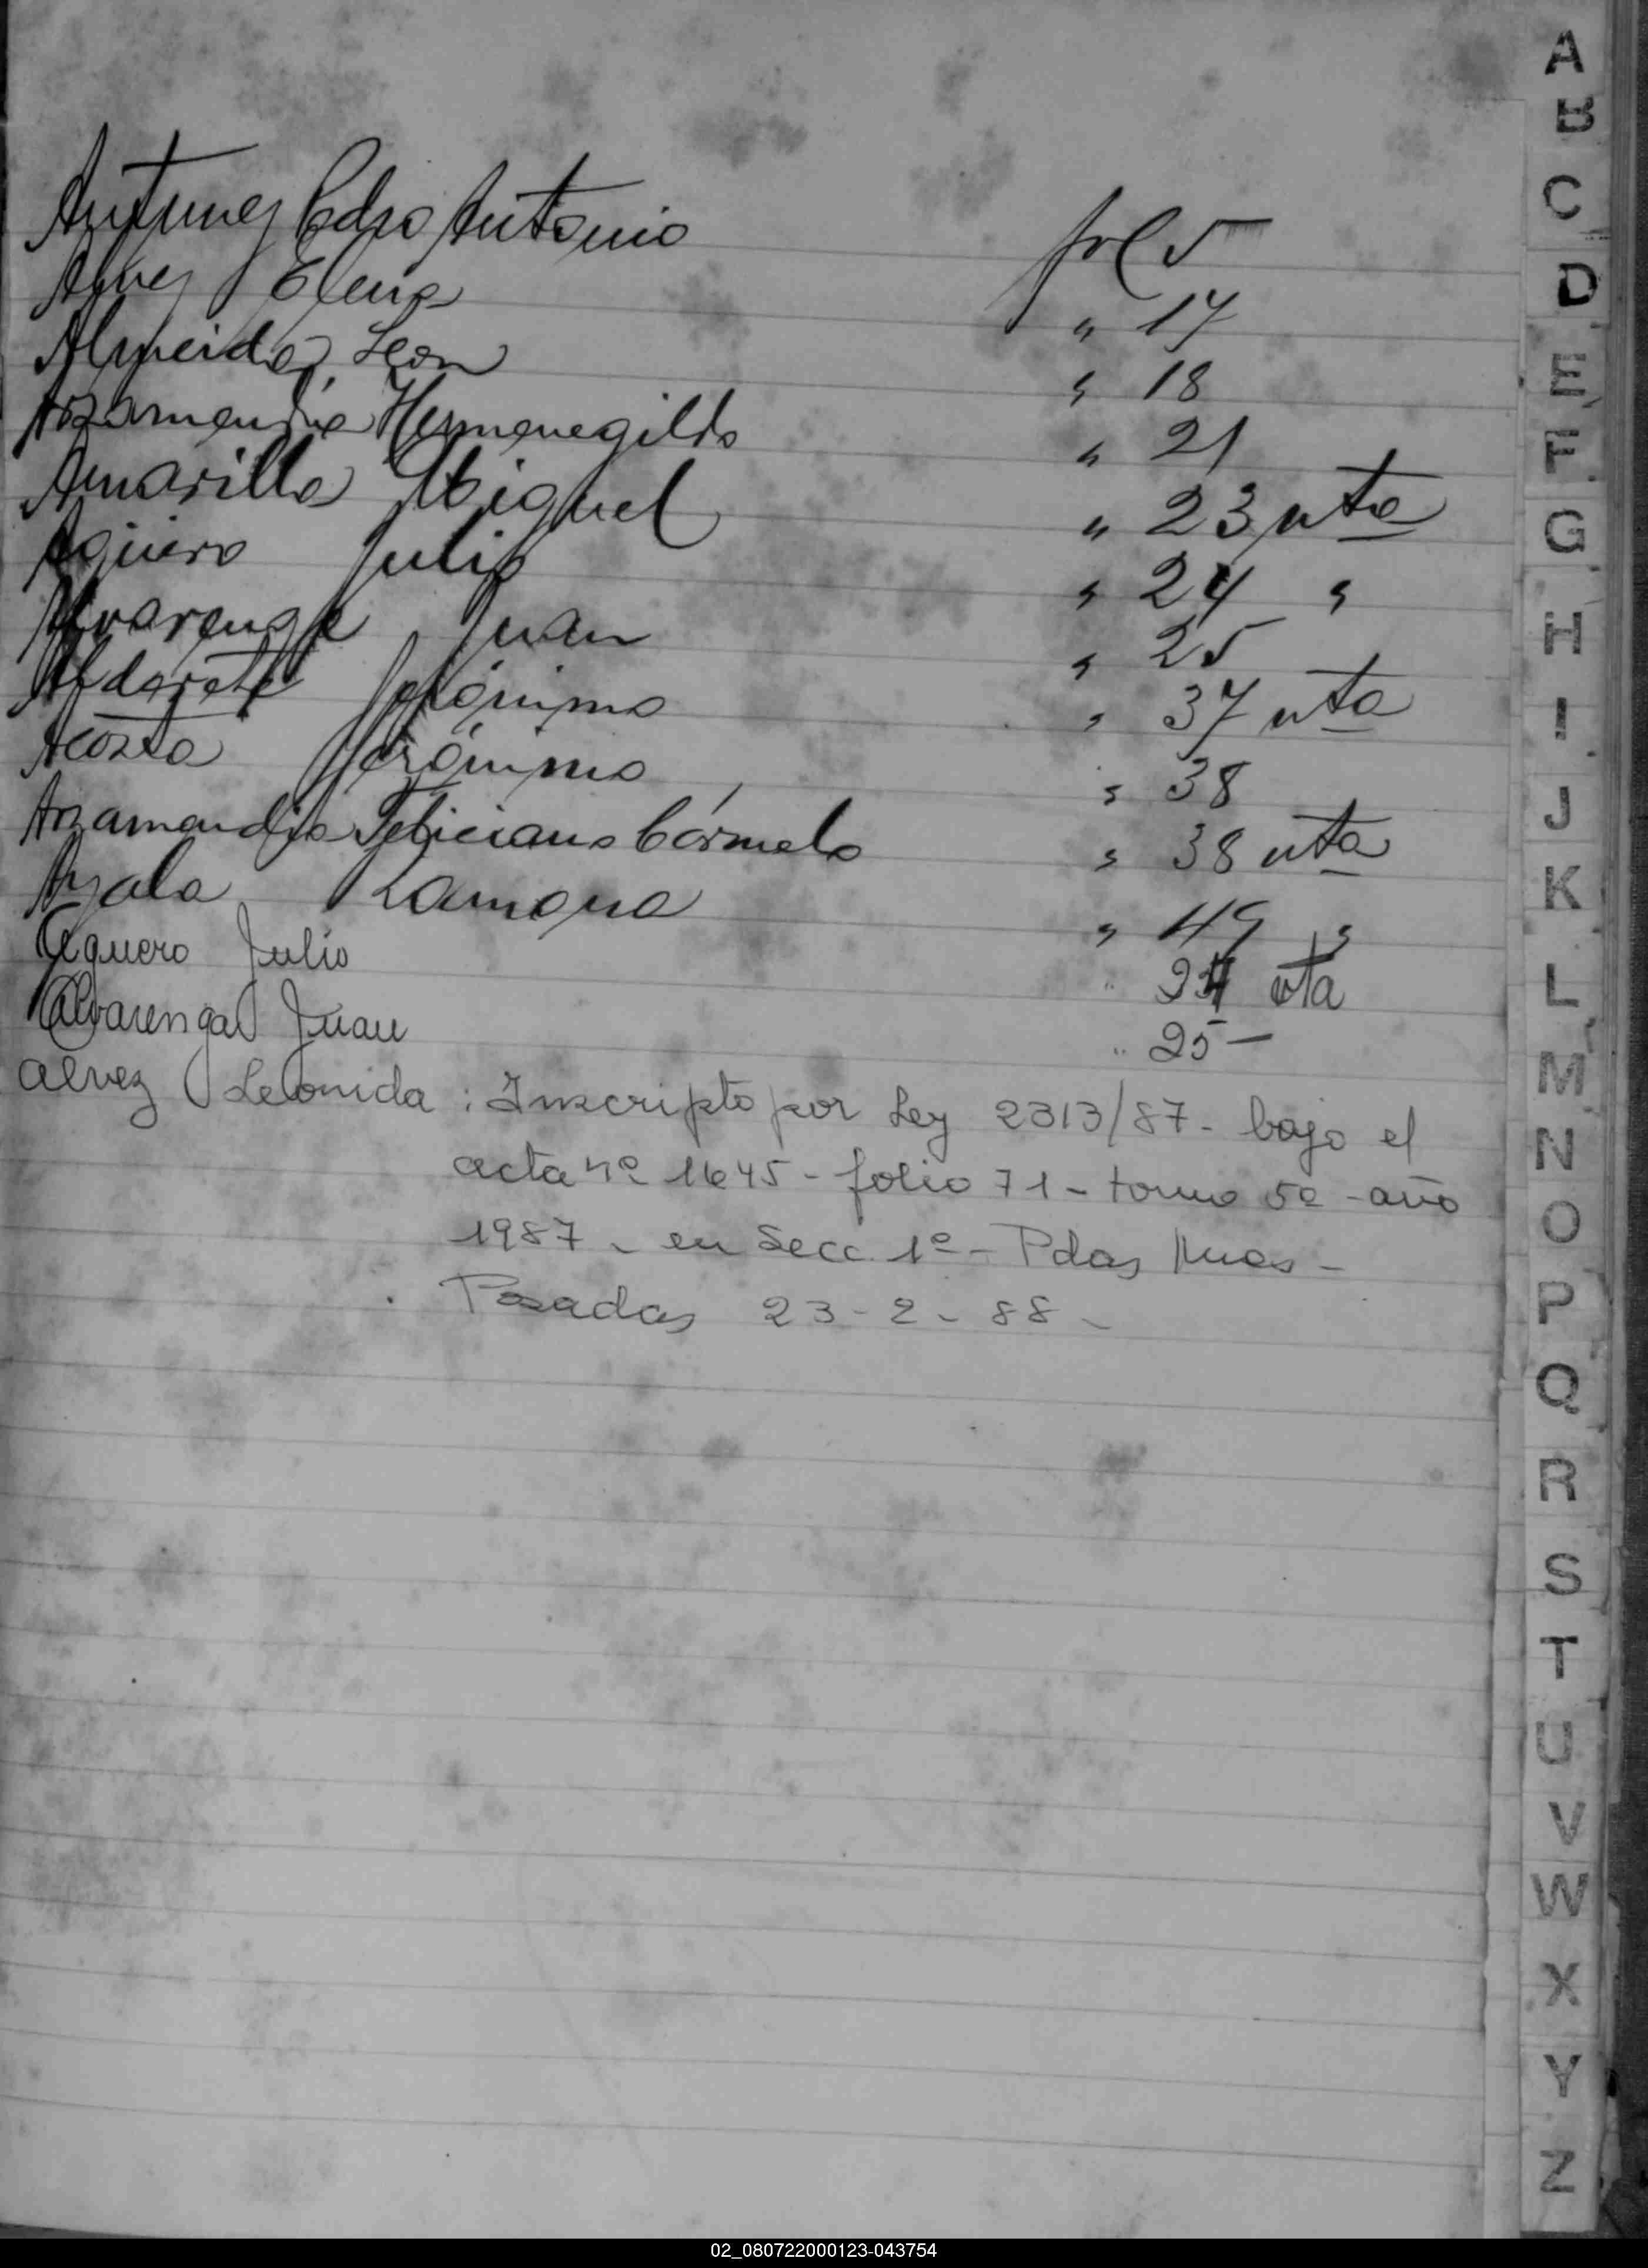 Antunez Pedro Antonio fol 5
Alvez Elena " 17
Almeida, Leon " 18
Arzamendia Hermenegildo " 21
Amarilla Miguel " 23 vta
Agüero Julio " 24 "
Alvarenga Juan " 25
Alderete Gerónimo " 37 vta
Acosta Gerónimo " 38
Arzamendia Feliciano Cármelo " 38 vta
Ayala Ramona " 49 "
Aguero Julio " 24 vta
Alvarenga Juan " 25 -
Alvez Leonida : Inscripto por Ley 2313/87 - bajo el
acta nº 1645 - folio 71 - tomo 5º - año
1987 - en Secc 1º - Pdas Mnes -
Posadas 23 - 2 - 88 -
A
B
C
D
E
F
G
H
I
J
K
L
M
N
O
P
Q
R
S
T
U
V
W
X
Y
Z
02_080722000123-043754